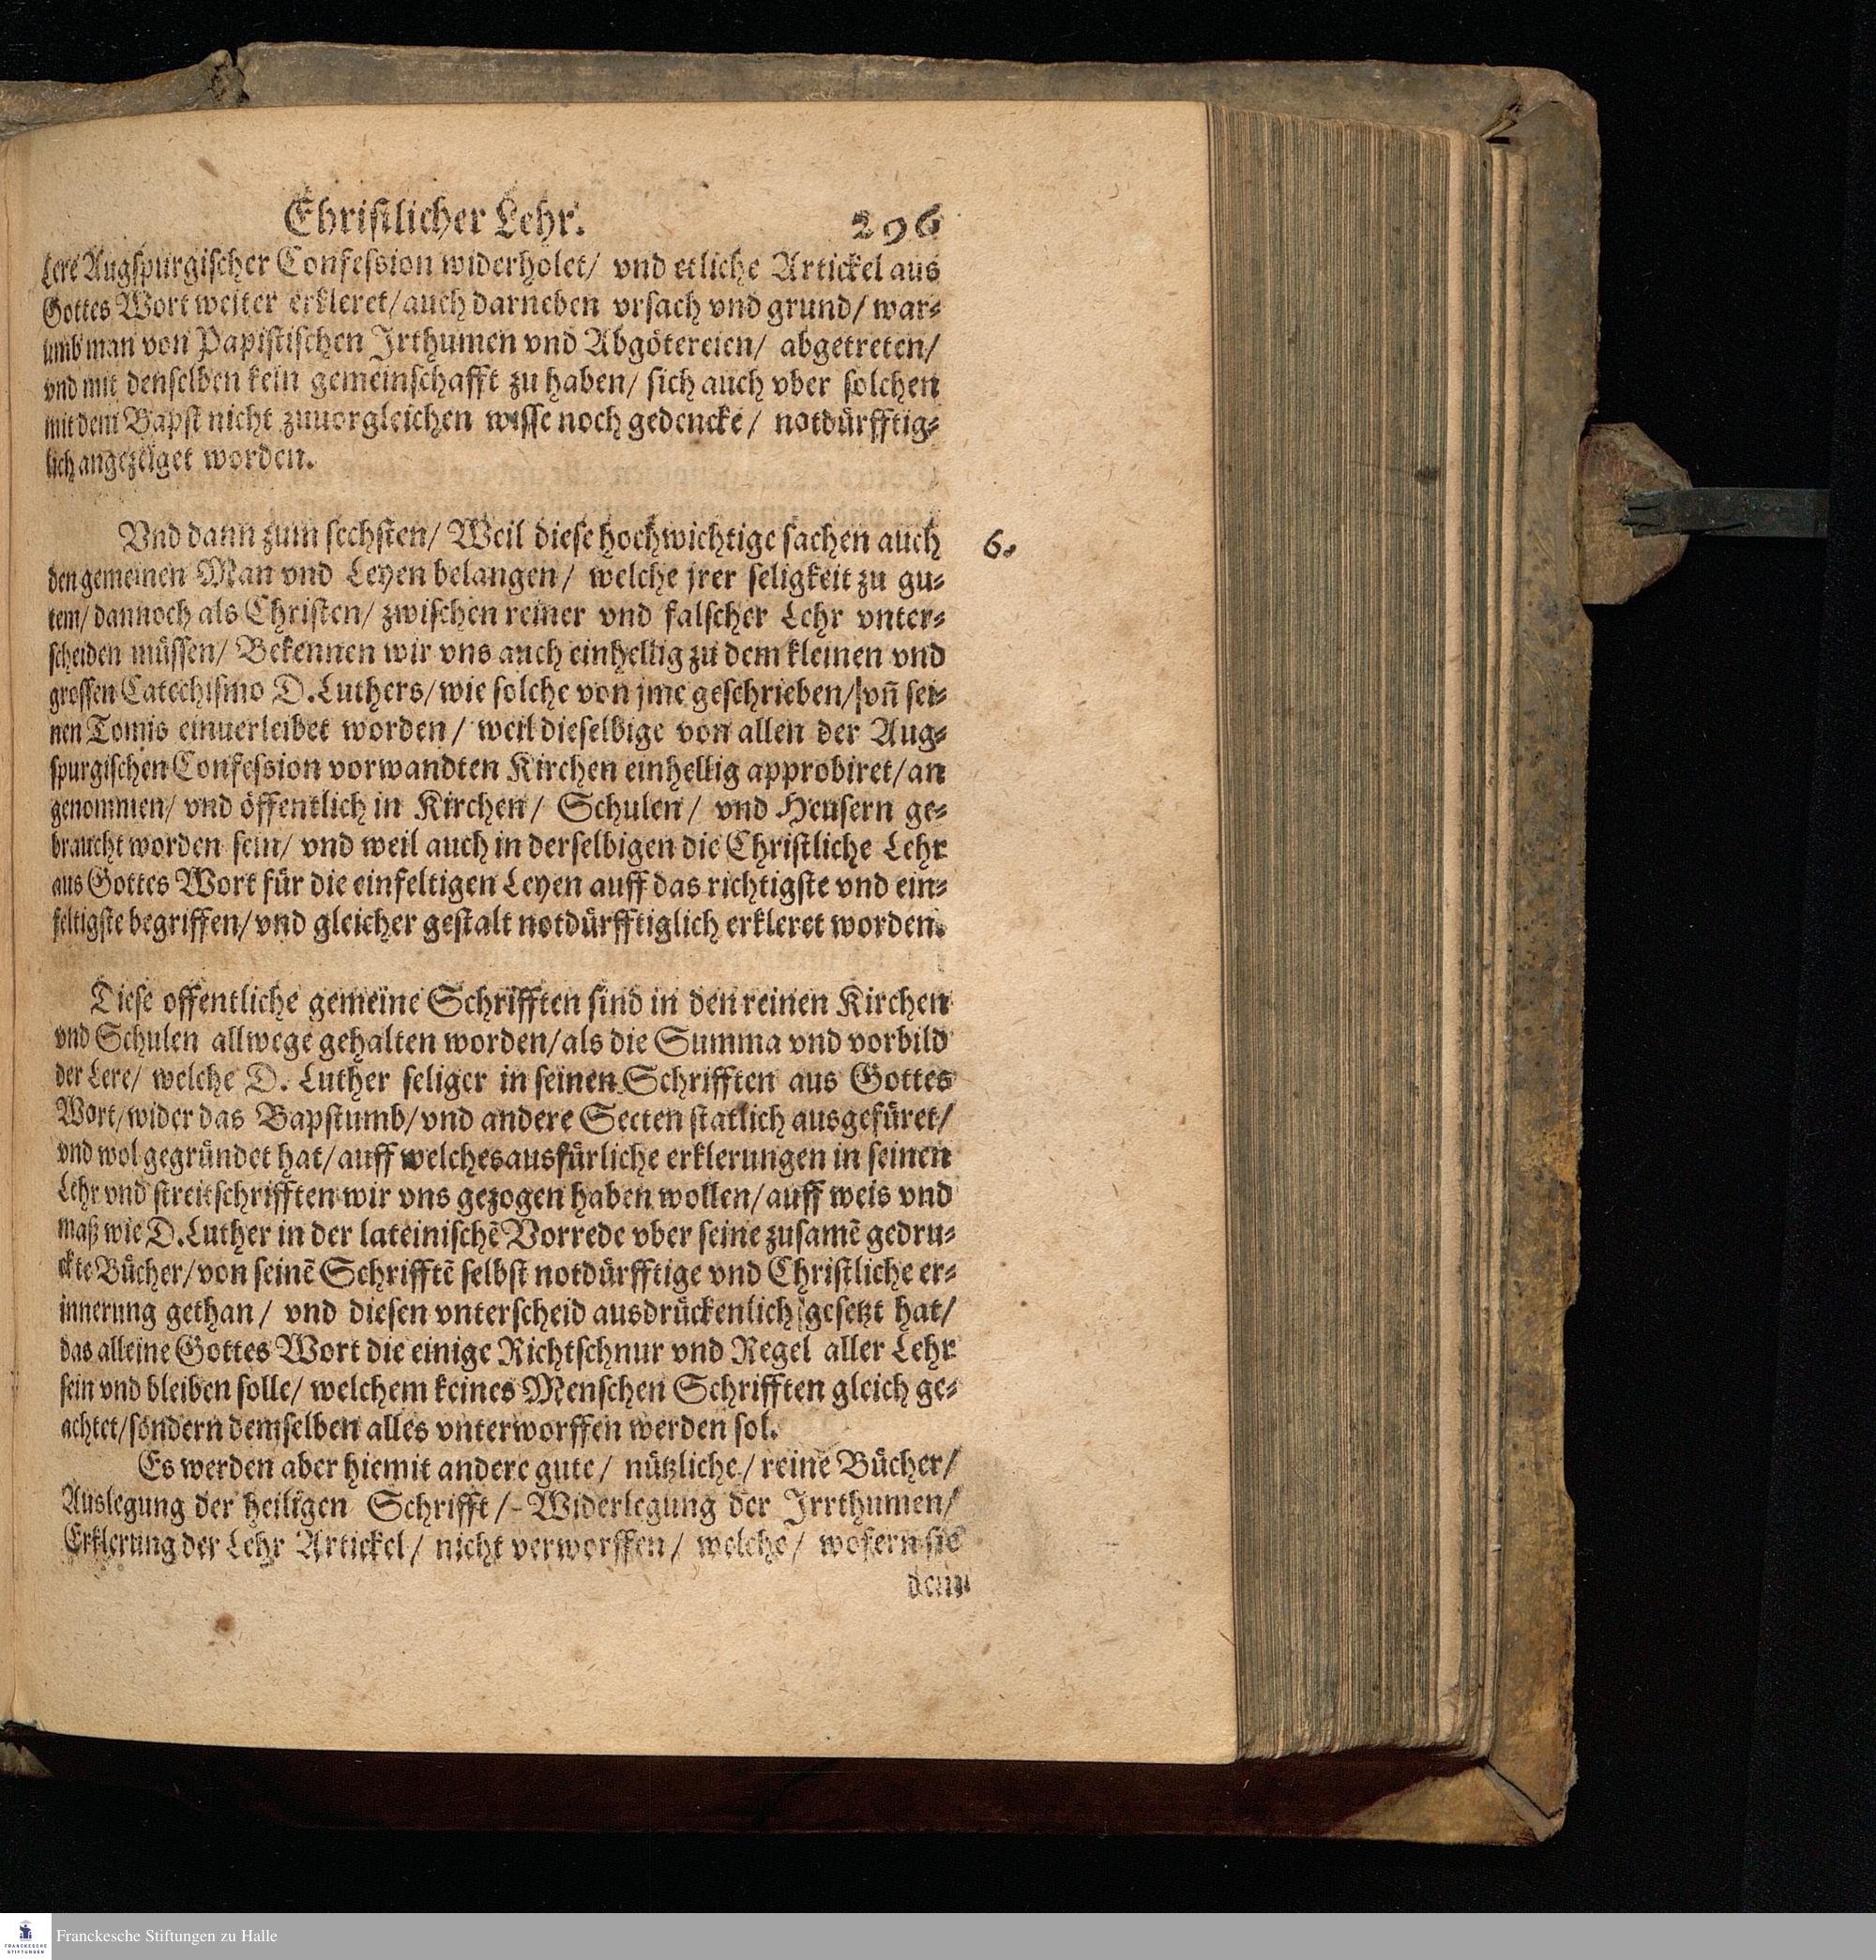 Christlicher Lehr. 296
Lere Augspurgischer Confession widerholet/ vnd etliche Artickel aus
Gottes Wort weiter erkleret/ auch darneben vrsach vnd grund/ war⸗
umb man von Papistischen Irthumen vnd Abgötereien/ abgetreten/
vnd mit denselben kein gemeinschafft zu haben/ sich auch vber solchen
mit dem Bapst nicht zuuorgleichen wisse noch gedencke/ notdürfftig⸗
lich angezeiget worden.
Vnd dann zum sechsten/ Weil diese hochwichtige sachen auch 6.
den gemeinen Man vnd Leyen belangen/ welche jrer seligkeit zu gu⸗
tem/ dannoch als Christen/ zwischen reiner vnd falscher Lehr vnter⸗
scheiden müssen/ Bekennen wir vns auch einhellig zu dem kleinen vnd
grossen Catechismo D. Luthers/ wie solche von jme geschrieben/ vñ sei⸗
nen Tomis einuerleibet worden/ weil dieselbige von allen der Aug⸗
spurgischen Confession vorwandten Kirchen einhellig approbiret/ an
genommen/ vnd öffentlich in Kirchen/ Schulen/ vnd Heusern ge⸗
braucht worden sein/ vnd weil auch in derselbigen die Christliche Lehr
aus Gottes Wort für die einfeltigen Leyen auff das richtigste vnd ein⸗
feltigste begriffen/ vnd gleicher gestalt notdürfftiglich erkleret worden.
Diese offentliche gemeine Schrifften sind in den reinen Kirchen
vnd Schulen allwege gehalten worden/ als die Summa vnd vorbild
der Lere/ welche D. Luther seliger in seinen Schrifften aus Gottes
Wort/ wider das Bapstumb/ vnd andere Secten statlich ausgefüret/
vnd wol gegründet hat/ auff welches ausfürliche erklerungen in seinen
Lehr vnd streitschrifften wir vns gezogen haben wollen/ auff weis vnd
maß wie D. Luther in der lateinischẽ Vorrede vber seine zusamẽ gedru⸗
ckte Bücher/ von seinẽ Schrifftẽ selbst notdürfftige vnd Christliche er⸗
innerung gethan/ vnd diesen vnterscheid ausdrückenlich gesetzt hat/
das alleine Gottes Wort die einige Richtschnur vnd Regel aller Lehr
sein vnd bleiben solle/ welchem keines Menschen Schrifften gleich ge⸗
achtet/ sondern demselben alles vnterworffen werden sol.
Es werden aber hiemit andere gute/ nützliche/ reine Bücher/
Auslegung der heiligen Schrifft/ Widerlegung der Irrthumen/
Erklerung der Lehr Artickel/ nicht verworffen/ welche/ wofern sie
dem
FRANCKESCHE
STIFTUNGEN
Franckesche Stiftungen zu Halle